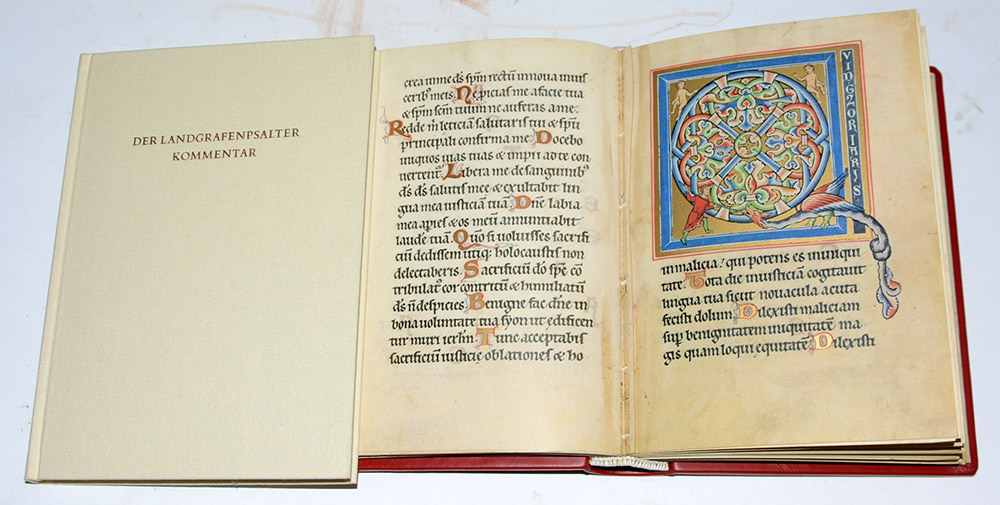 DER LANDGRAFENPSALTER
KOMMENTAR
crea in me d̄s sp̄m rectū innoua in uiſ-
cerib; meis. Ne p̲icias me a facie tua
& sp̄m scm̄ tuum ne auferas a me.
Redde m̄ leticiā salutaris tui & sp̄u
principali confirma me. Docebo
iniquos uias tuas & impii ad te con
uertent̄. Libera me de sanguinib;
d̄s d̄s salutis mee & exultabit lin
gua mea iusticiā tuā. Dn̄e labia
mea ap̲ies & os meū annuntiabit
laudē tuā. Qūo si uoluisses sacrifi
ciū dedissem utiq; holocaustis non
delectaberis. Sacrificiū dō sp̄c cō
tribulat' cor contritū & humiliatū
d̄s n̄ despicies. Benigne fac dn̄e in
bona uoluntate tua syon ut edificen
tur muri ierl̄m. Tunc acceptabis
sacrificiū iusticie oblationes & ho
Q
VID GLORIARIS
in malicia? qui potens es in iniqui
tate. Tota die iniusticiā cogitauit
lingua tua sicut nouacula acuta
fecisti dolum. Dilexisti maliciam
sup̄ benignitatem iniquitatē ma
gis quam loqui equitatē. Dilexisti